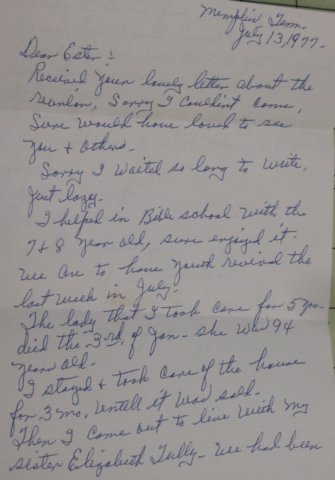 Memphis Tenn.
July 13, 1977.
Dear Ester:
Received your lovely letter about the
reunion, Sorry I couldn't come,
Sure would have loved to see
you + others.
Sorry I waited so long to write,
Just lazy.
I helped in Bible school with the
7 + 8 year old, sure enjoyed it.
We are to have youth revival the
last week in July.
The lady that I took care for 5 yrs.
died the 3rd. of Jan. she was 94
years old.
I stayed + took care of the house
for 3 mo. untell it was sold.
Then I came out to live with my
sister Elizabeth Tully. We had been